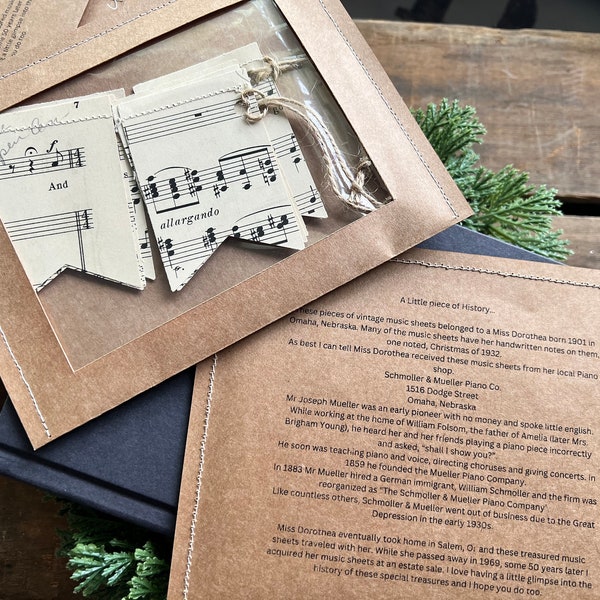 some 50 years later
a little glimpse into the
do too
7
And
allargando
A Little piece of History...
These pieces of vintage music sheets belonged to a Miss Dorothea born 1901 in
Omaha, Nebraska. Many of the music sheets have her handwritten notes on them,
one noted, Christmas of 1932.
As best I can tell Miss Dorothea received these music sheets from her local Piano
shop.
Schmoller & Mueller Piano Co.
1516 Dodge Street
Omaha, Nebraska
Mr Joseph Mueller was an early pioneer with no money and spoke little english.
While working at the home of William Folsom, the father of Amelia (later Mrs.
Brigham Young), he heard her and her friends playing a piano piece incorrectly
and asked, "shall I show you?".
He soon was teaching piano and voice, directing choruses and giving concerts. In
1859 he founded the Mueller Piano Company.
In 1883 Mr Mueller hired a German immigrant, William Schmoller and the firm was
reorganized as "The Schmoller & Mueller Piano Company'
Like countless others, Schmoller & Mueller went out of business due to the Great
Depression in the early 1930s.
Miss Dorothea eventually took home in Salem, O; and these treasured music
sheets traveled with her. While she passed away in 1969, some 50 years later I
acquired her music sheets at an estate sale. I love having a little glimpse into the
history of these special treasures and I hope you do too.